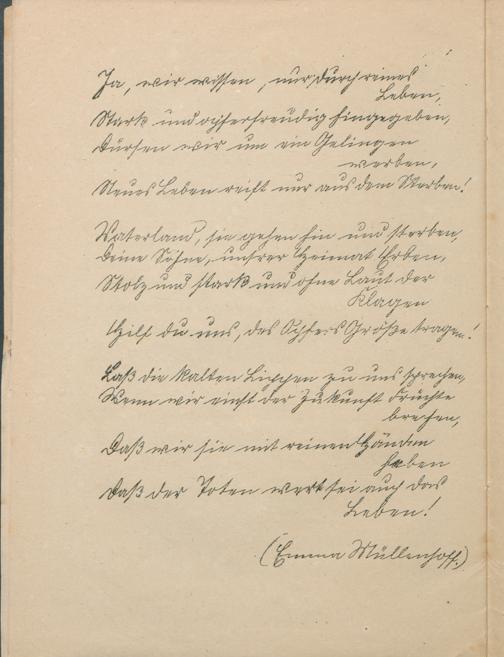 Ja, wir wissen, nur durch reines
Leben,
Stark und opferfreudig hingegeben,
Dürfen wir um ein Gelingen
werben,
Neues Leben reift nur aus dem Sterben!
Vaterland, sie gehen hin und sterben,
Deine Söhne, unsrer Heimat Erben,
Stolz und stark und ohne Laut der
Klagen
Hilf du uns, des Opfers Größe tragen!
Laß die kalten Lippen zu uns sprechen,
Wenn wir einst der Zukunft Früchte
brechen,
Daß wir sie mit reinen Händen
heben
Daß der Toten wert sei auch das
Leben!
(Emma Müllenhoff.)